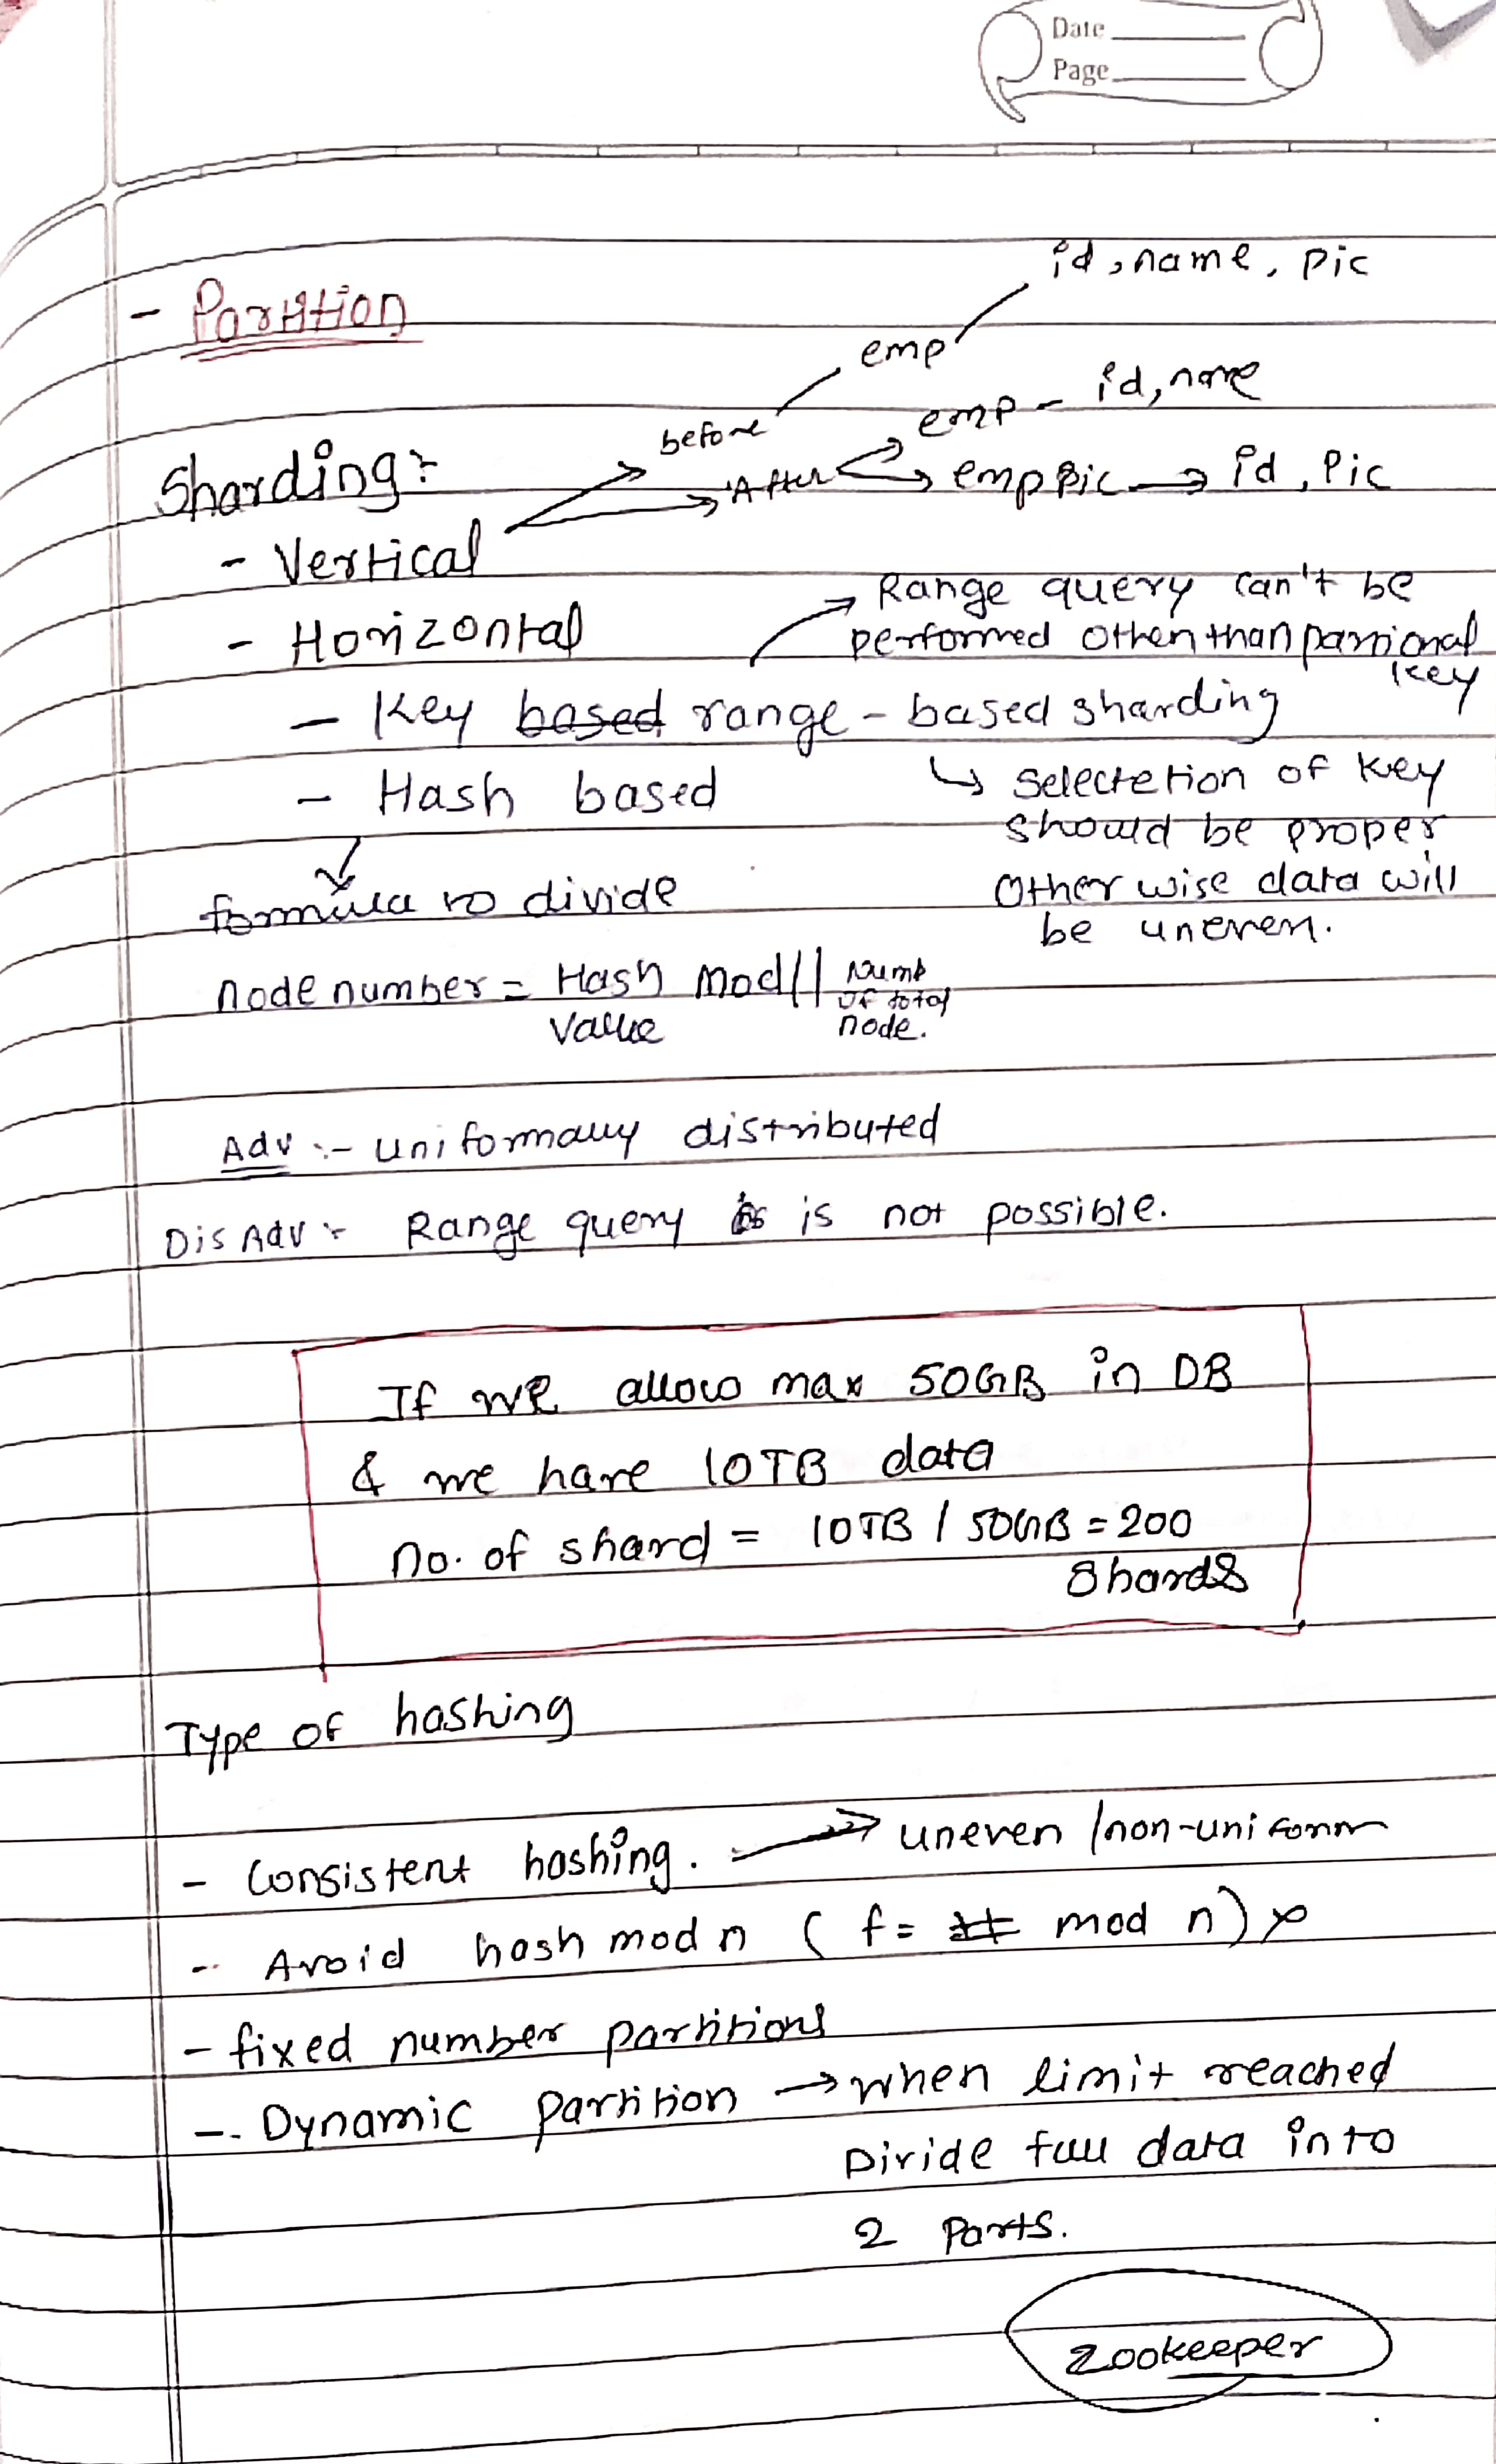 Date
Page
- Partition
id, name, pic
emp
before
emp - id, name
Sharding:-
After
emp pic → id, Pic
- Vertical
→ Range query can't be
performed other than partional
key
- Horizontal
- Key based range - based sharding
↳ selectetion of key
should be proper
other wise data will
be uneven.
- Hash based
formula to divide
node number = Hash Value mod || Numb of total node.
Adv :- uniformally distributed
DisAdv :- Range query is is not possible.
If we allow max 50GB in DB
& we have 10TB data
no. of shard = 10TB / 50GB = 200
Shards
Type of hashing
- Consistent hashing. → uneven / non-uniform
- Avoid hash mod n ( f = mod n) x
- fixed number partitions
- Dynamic partition → when limit reached
Divide full data into
2 Parts.
Zookeeper